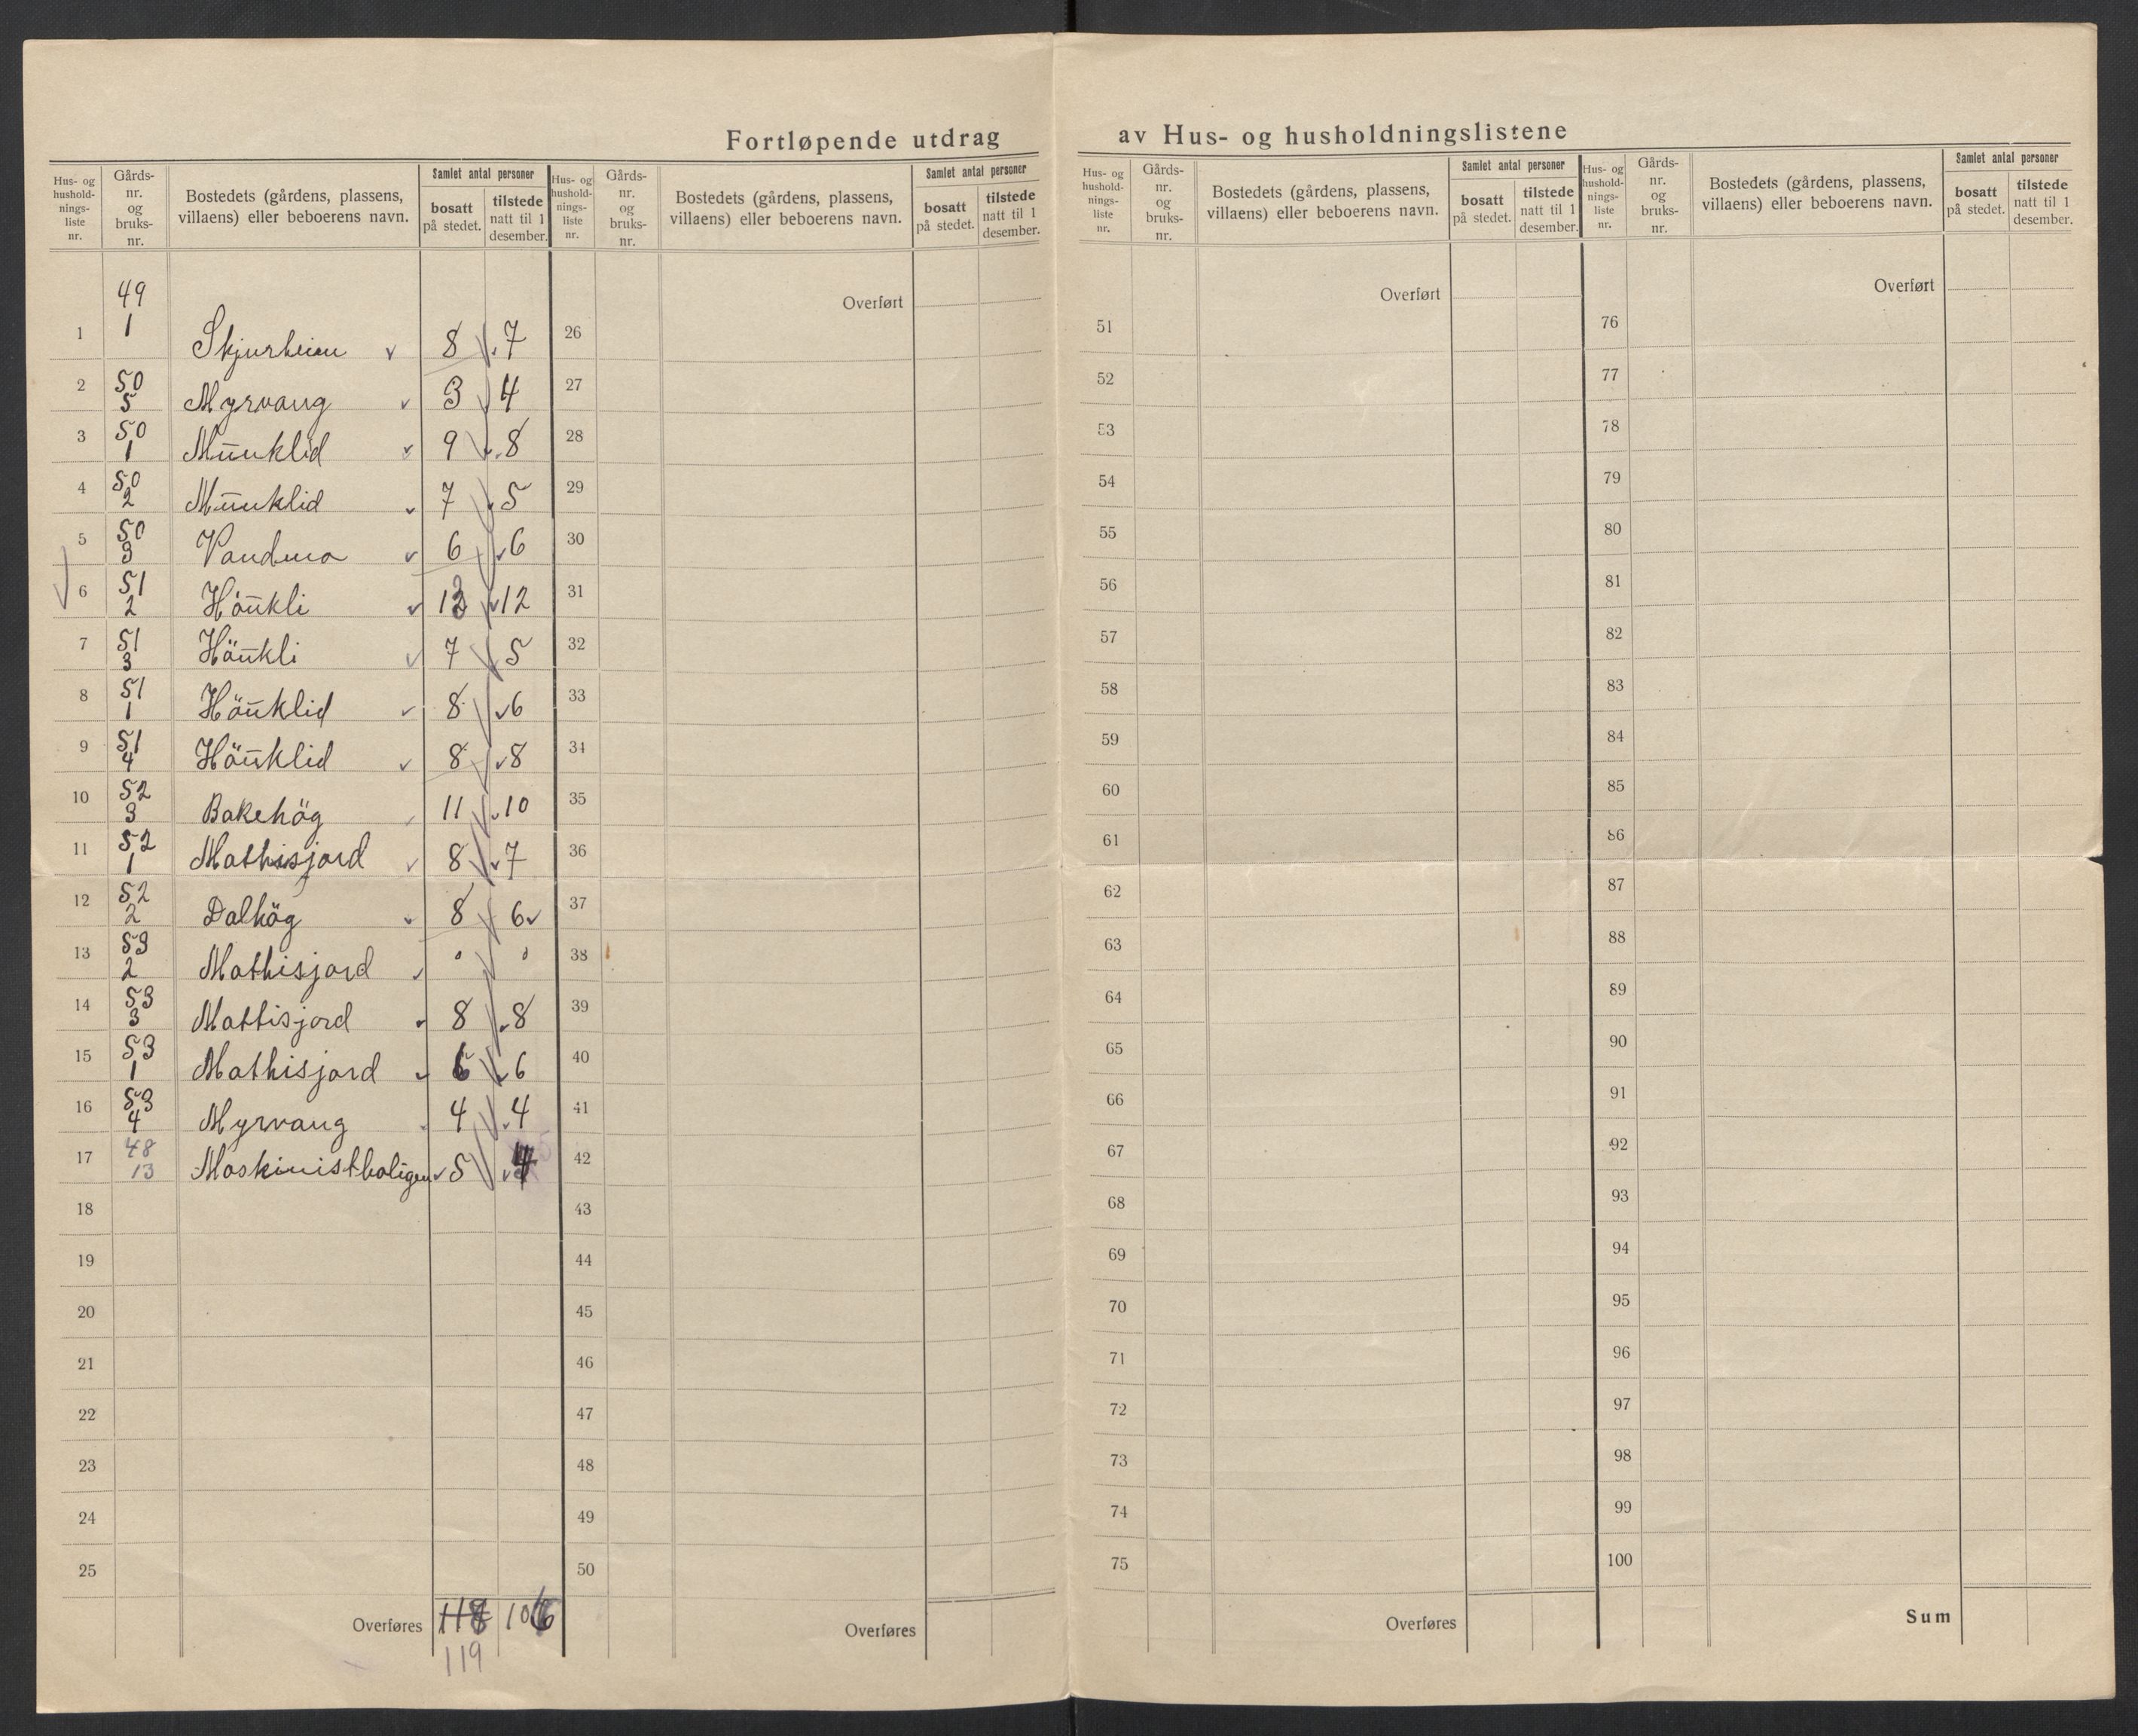 Fortløpende utdrag av Hus- og husholdningslistene
Hus- og hushold-nings-liste nr. Gårds-nr. og bruks-nr. Bostedets (gårdens, plassens, villaens) eller beboerens navn. Samlet antal personer bosatt på stedet. tilstede natt til 1 desember.
1 49 1 Skjurheim 8 7
2 50 5 Myrvang 3 4
3 50 1 Munklid 9 8
4 50 2 Munklid 7 5
5 50 3 Vandmo 6 6
6 51 2 Hönkli 13 12
7 51 3 Hönkli 7 5
8 51 1 Hönklid 8 6
9 51 4 Hönklid 8 8
10 52 3 Bakehög 11 10
11 52 1 Mathisjord 8 7
12 52 2 Dalhög 8 6
13 53 2 Mathisjord 0 0
14 53 3 Mattisjord 8 8
15 53 1 Mathisjord 6 6
16 53 4 Myrvang 4 4
17 48 13 Maskinistboligen 5 4
18
19
20
21
22
23
24
25
Overføres 118 106
119
Hus- og hushold-nings-liste nr. Gårds-nr. og bruks-nr. Bostedets (gårdens, plassens, villaens) eller beboerens navn. Samlet antal personer bosatt på stedet. tilstede natt til 1 desember.
Overført
26
27
28
29
30
31
32
33
34
35
36
37
38
39
40
41
42
43
44
45
46
47
48
49
50
Overføres
Hus- og hushold-nings-liste nr. Gårds-nr. og bruks-nr. Bostedets (gårdens, plassens, villaens) eller beboerens navn. Samlet antal personer bosatt på stedet. tilstede natt til 1 desember.
Overført
51
52
53
54
55
56
57
58
59
60
61
62
63
64
65
66
67
68
69
70
71
72
73
74
75
Overføres
Hus- og hushold-nings-liste nr. Gårds-nr. og bruks-nr. Bostedets (gårdens, plassens, villaens) eller beboerens navn. Samlet antal personer bosatt på stedet. tilstede natt til 1 desember.
Overført
76
77
78
79
80
81
82
83
84
85
86
87
88
89
90
91
92
93
94
95
96
97
98
99
100
Sum